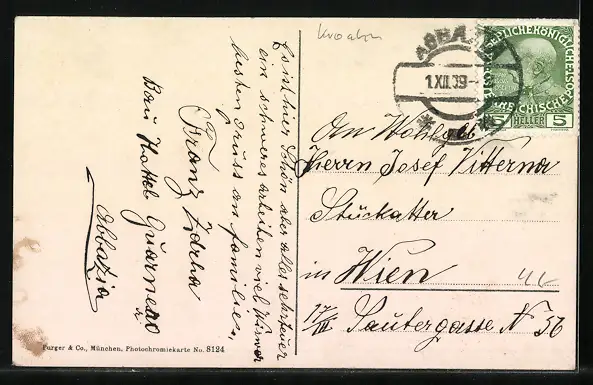 Kroatien
ABBAZIA
1.XII.09
KAISERLICHE KÖNIGLICHE ÖSTERREICHISCHE POST
5 HELLER 5
Es ist hier Schön aber alles sehr teuer
ein schweres arbeiten viel
besten Gruss an familie,
Franz Zdrha
Bau Hottel Quarnero
Abbazia
An Wohlgeb
Herrn Josef Vitterna
Stuckatter
in Wien
17/III Sautergasse N 56
Purger & Co., München, Photochromiekarte No. 8124